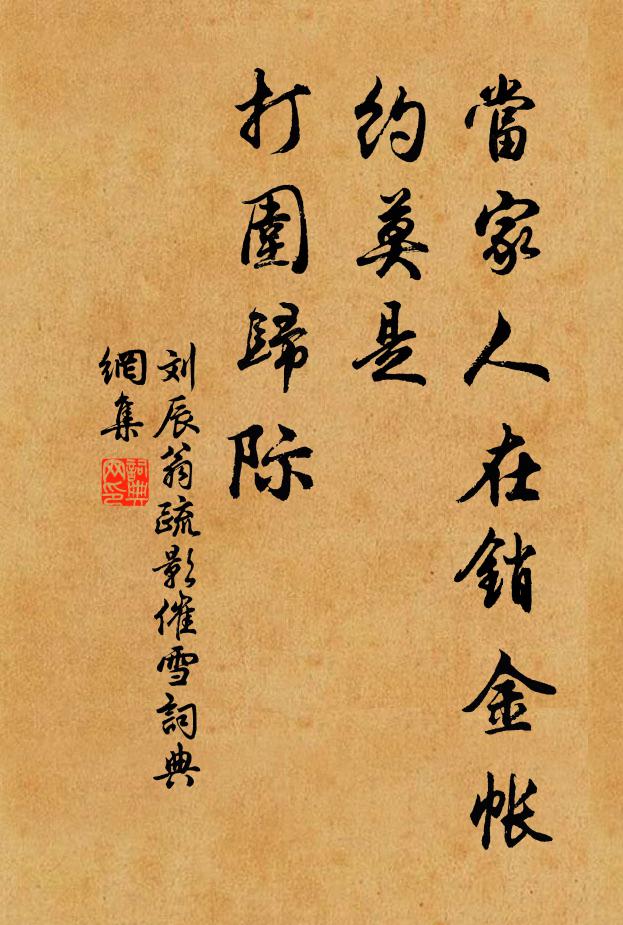 當家人在銷金帳
約莫是
打圍歸际
刘辰翁疏影催雪詞典
網集
詞典
网印